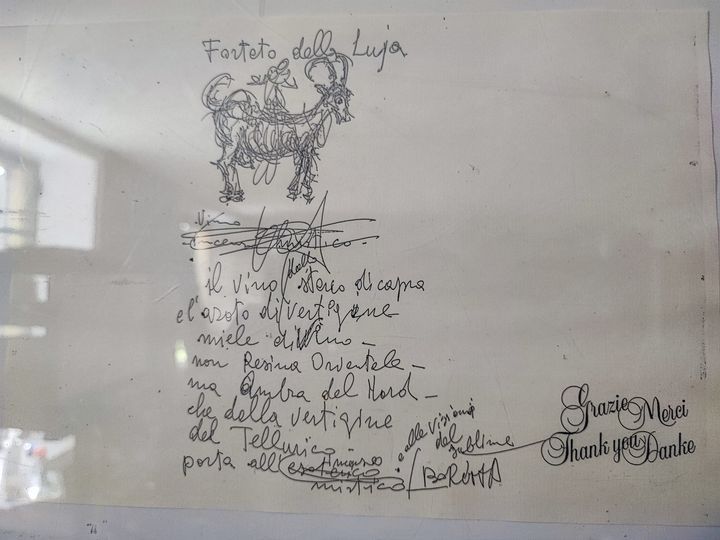 Forteto della Luja
Vino
il vino dallo sterco di capra
e l'azoto di vertigine
miele divino –
non Resina Orientale –
ma Ambra del Nord –
che dalla vertigine
del Tellurico –
porta all'
mistico
e alle visioni
del
sublime
Grazie Merci
Thank you Danke